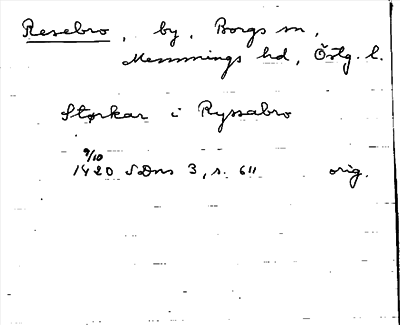 Resebro, by, Borgs sn,
Memmings hd, Östg. l.
Størkar i Ryssabro
9/10
1420 SDns 3, s. 611 orig.